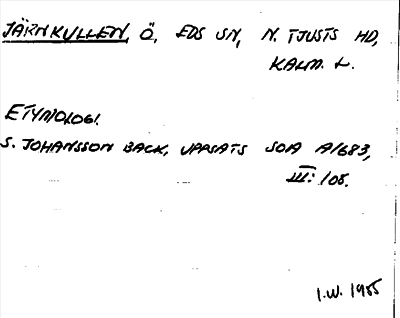 JÄRNKULLEN, Ö. EDS SN, N. TJUSTS HD,
KALM. L.
ETYMOLOGI.
S. JOHANSSON BACK, UPPSATS SOA A1683,
III: 108.
I.W. 1955